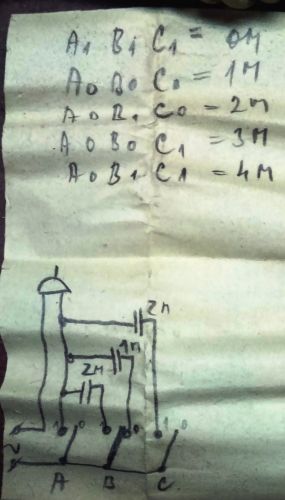 A₁ B₁ C₁ = 0M
A₀ B₀ C₀ = 1M
A₀ B₁ C₀ = 2M
A₀ B₀ C₁ = 3M
A₀ B₁ C₁ = 4M
2M
1M
2M
1 0 0 1 0
~
A B C